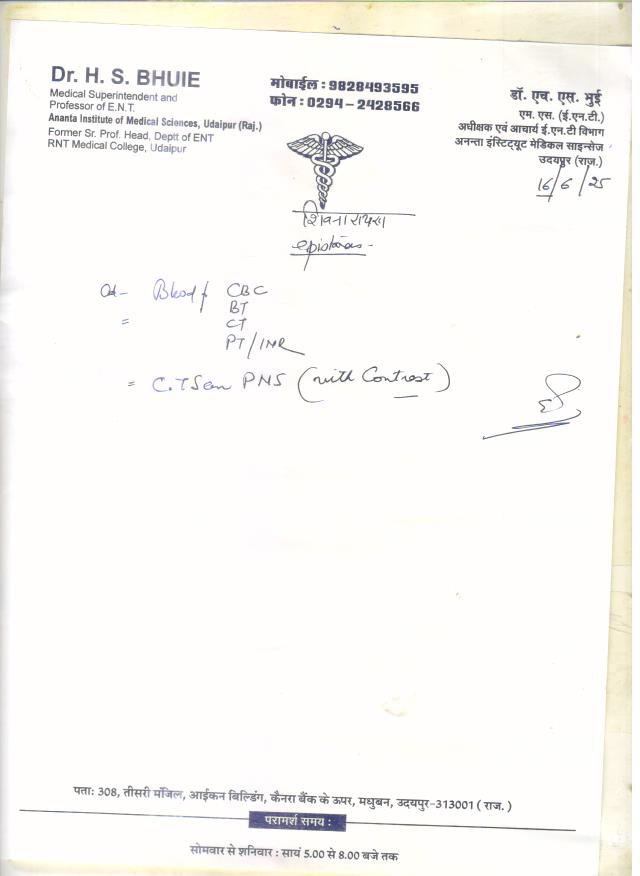 Dr. H. S. BHUIE
Medical Superintendent and
Professor of E.N.T.
Ananta Institute of Medical Sciences, Udaipur (Raj.)
Former Sr. Prof. Head, Deptt of ENT
RNT Medical College, Udaipur
मोबाईल : 9828493595
फोन : 0294 – 2428566
डॉ. एच. एस. भुई
एम. एस. (ई.एन.टी.)
अधीक्षक एवं आचार्य ई.एन.टी विभाग
अनन्ता इंस्टिट्यूट मेडिकल साइन्सेज
उदयपुर (राज.)
16/6/25
epistaxis -
Blood CBC
BT
=
CT
PT/INR
= C.T Scan PNS (with Contrast)
पताः 308, तीसरी मंजिल, आईकन बिल्डिंग, कैनरा बैंक के ऊपर, मधुबन, उदयपुर-313001 ( राज. )
परामर्श समय :
सोमवार से शनिवार : सायं 5.00 से 8.00 बजे तक